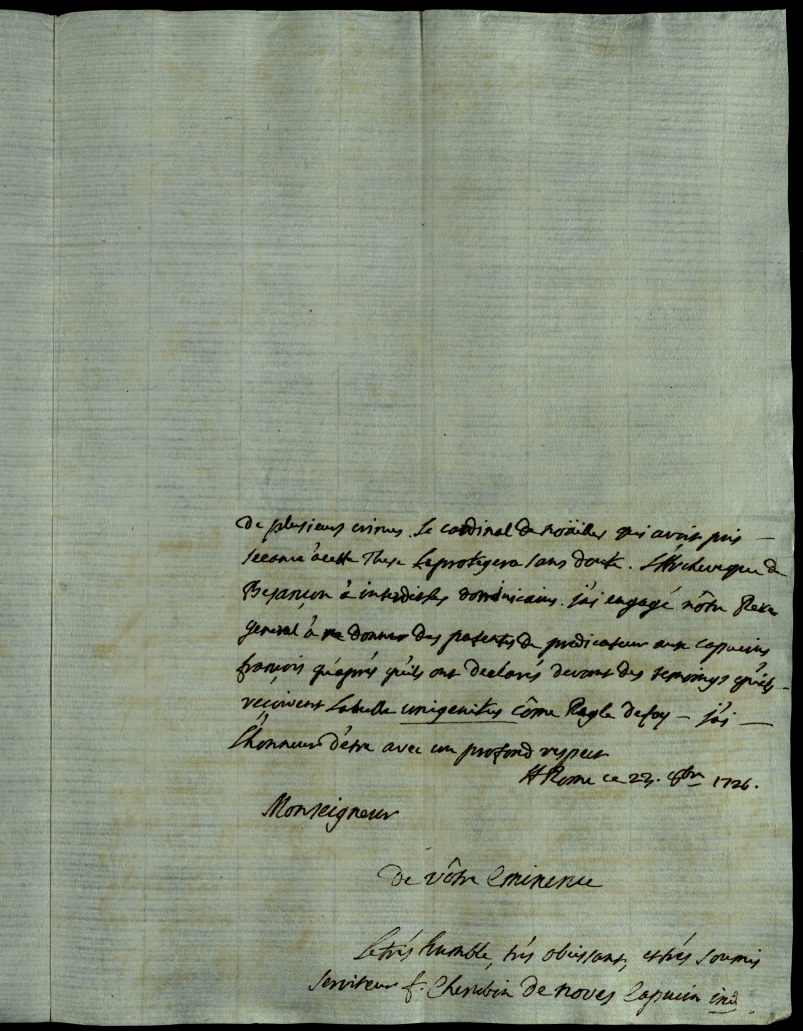 de plusieurs crimes. Le cardinal de noäilles qui avoit pris —
seance à cette These le protegera sans doute. L'Archeveque de
Besançon à interdit les dominicains. j'ai engagé nôtre Pere
general à ne donner des patentes de predicateur aux capucins
françois qu'aprés qu'ils ont declarés devant des temoings qu'ils —
reçoivent la bulle unigenitus côme Regle de foy — j'ai —
l'honneur d'être avec un profond respect
A Rome ce 23. 1726.
Monseigneur
De vôtre Eminence
Le trés humble, trés obeissant, et trés soumis
serviteur f. Cherubin de noves Capucin ind